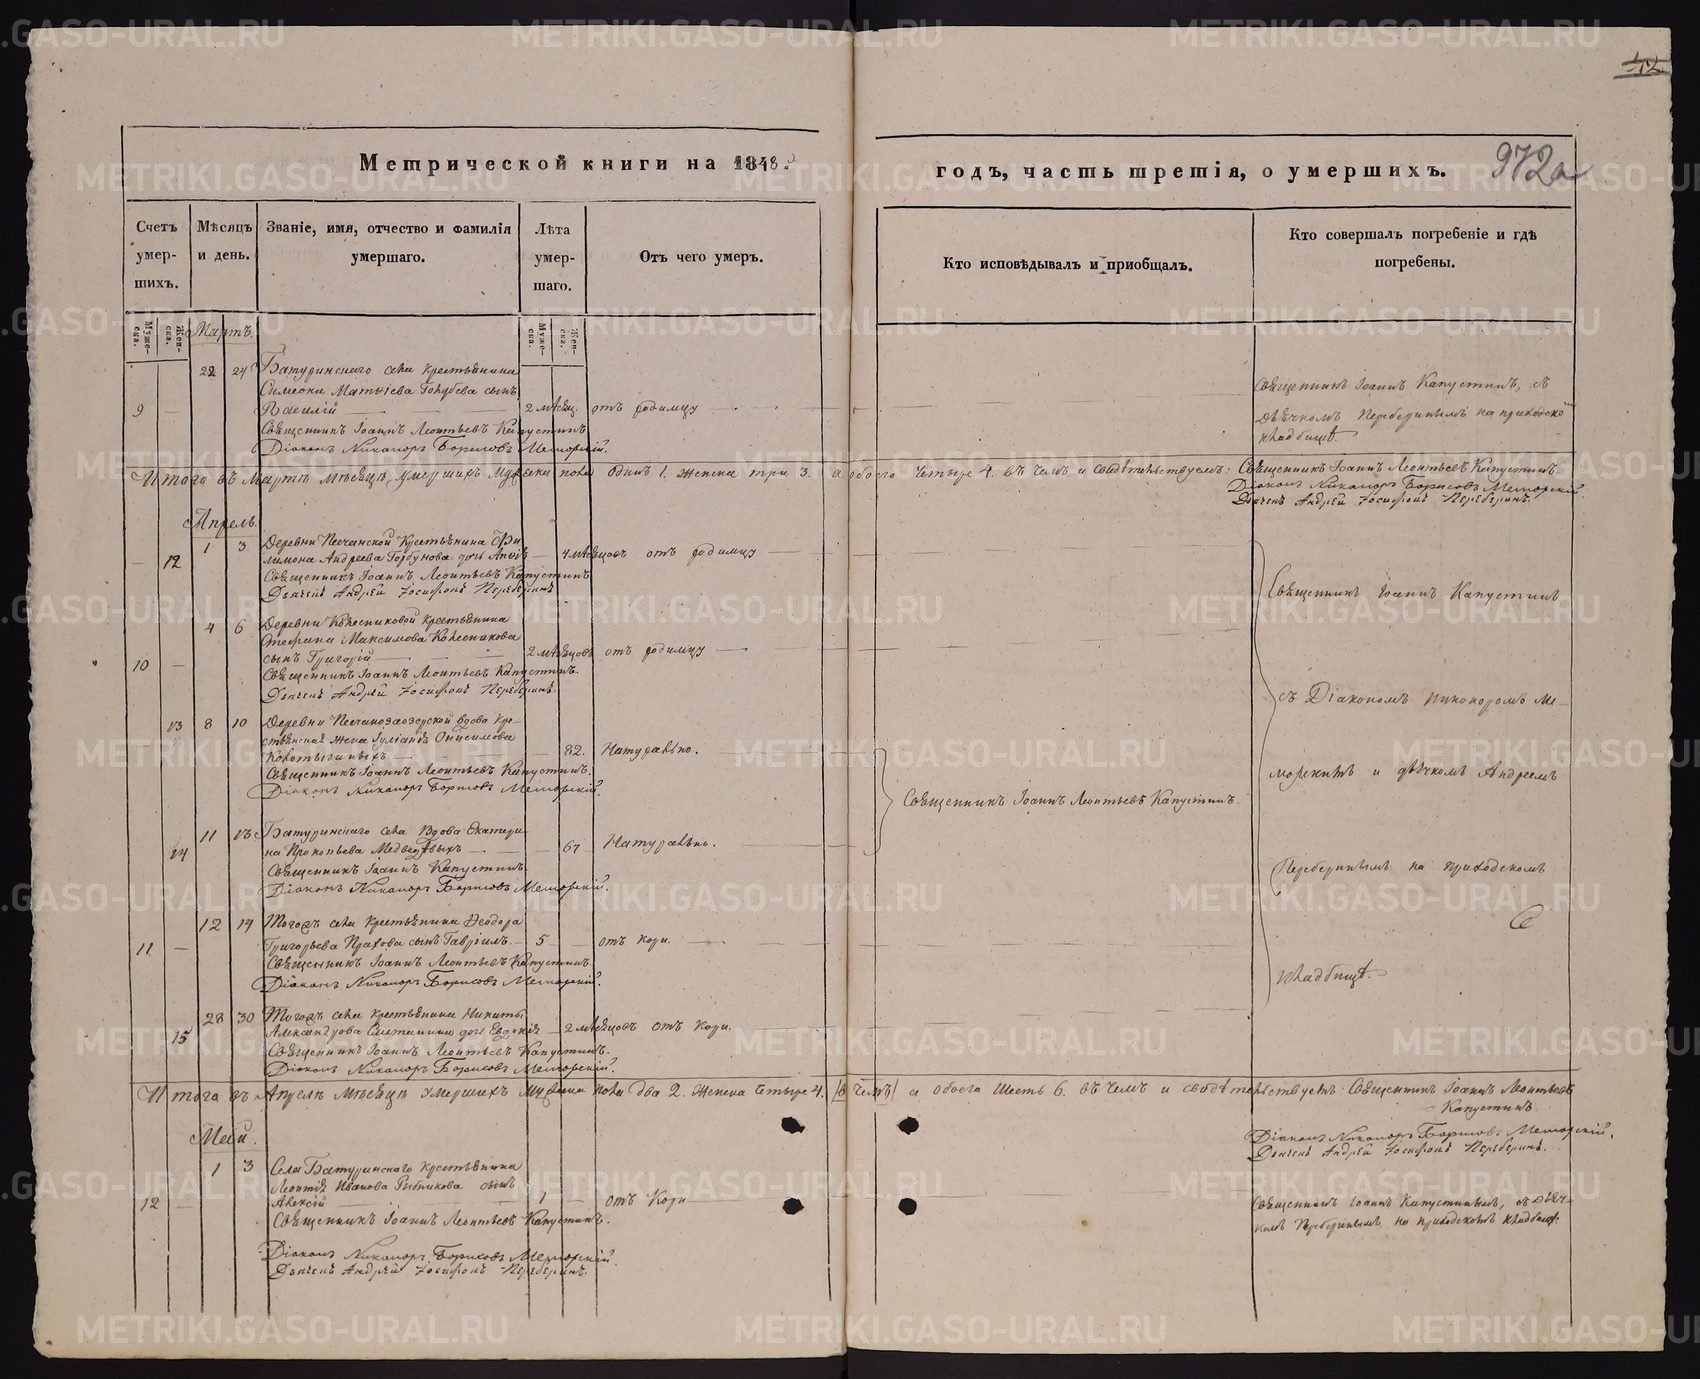 42
Метрической книги на 1848
годъ, часть третія, о умершихъ.
972а
Счетъ умер-шихъ.
Мѣсяцъ и день.
Званіе, имя, отчество и фамилія умершаго.
Лѣта умер-шаго.
Отъ чего умеръ.
Кто исповѣдывалъ и пріобщалъ.
Кто совершалъ погребеніе и гдѣ погребены.
Муже-ска.
Жен-ска.
Муже-ска.
Жен-ска.
Мартъ.
22 24 Батуринскаго села крестьянина
Симеона Матвіева Голубева сынъ
9 — Василій — 2 мѣсяц. отъ родимцу —
Священникъ Іоаннъ Леонтьевъ Капустинъ
Діаконъ Никаноръ Борисовъ Меморскій.
Священникъ Іоаннъ Капустинъ, съ
дьячкомъ Переберинымъ на приходско
кладбищѣ.
Итого въ Мартѣ мѣсяцѣ умершихъ мужеска пола одинъ 1. женска три 3. а обоего четыре 4. въ чемъ и свидѣтельствуемъ: Священникъ Іоаннъ Леонтьевъ Капустинъ
Діаконъ Никаноръ Борисовъ Меморскій.
Дьячекъ Андрей Іосифовъ Переберинъ.
Апрель.
1 3 Деревни Песчанской Крестьянина Фи
12 лимона Андреева Горбунова дочь — 4 мѣсяцовъ отъ родимцу —
Священникъ Іоаннъ Леонтьевъ Капустинъ
Дьячекъ Андрей Іосифовъ Переберинъ
4 6 Деревни Колесниковой крестьянина
Стефана Максимова Колесникова
10 — сынъ Григорій — 2 мѣсяцовъ отъ родимцу —
Священникъ Іоаннъ Леонтьевъ Капустинъ.
Дьячекъ Андрей Іосифовъ Переберинъ.
13 8 10 Деревни Песчанозаозерской вдова кре-
стьянская жена Іуліанія Онисимова
— 82. Натурально.
Священникъ Іоаннъ Леонтьевъ Капустинъ.
Діаконъ Никаноръ Борисовъ Меморскій.
11 13 Батуринскаго села Вдова Екатери-
14 на Прокопьева Медведѣвыхъ — 67 Натурально.
Священникъ Іоаннъ Капустинъ
Діаконъ Никаноръ Борисовъ Меморскій.
Священникъ Іоаннъ Леонтьевъ Капустинъ.
12 14 Тогожъ села Крестьянина Феодора
11 — Григорьева сынъ Гавріилъ — 5 — отъ кори. —
Священникъ Іоаннъ Леонтьевъ Капустинъ
Діаконъ Никаноръ Борисовъ Меморскій.
28 30 Тогожъ села крестьянина Никиты
15 Александрова Сметанина дочь Евдокія — 2 мѣсяцовъ отъ кори.
Священникъ Іоаннъ Леонтьевъ Капустинъ.
Діаконъ Никаноръ Борисовъ Меморскій.
Священникъ Іоаннъ Капустинъ
съ Діакономъ Никаноромъ Ме-
морскимъ и дьячкомъ Андреемъ
Переберинымъ на приходскомъ
кладбищѣ.
Итого въ Апрелѣ мѣсяцѣ умершихъ мужеска пола два 2. женска четыре 4. (въ чемъ) а обоего шесть 6. въ чемъ и свидѣтельствуемъ: Священникъ Іоаннъ Леонтьевъ
Капустинъ
Діаконъ Никаноръ Борисовъ Меморскій.
Дьячекъ Андрей Іосифовъ Переберинъ.
Май.
1 3 Села Батуринскаго крестьянина
Леонтія Иванова Рыбникова сынъ
12 — Алексій — 1 — отъ Кори —
Священникъ Іоаннъ Леонтьевъ Капустинъ.
Діаконъ Никаноръ Борисовъ Меморскій.
Дьячекъ Андрей Іосифовъ Переберинъ.
Священникомъ Іоанномъ Капустинымъ, съ дьяч-
комъ Переберинымъ на приходскомъ кладбищѣ.
METRIKI.GASO-URAL.RU